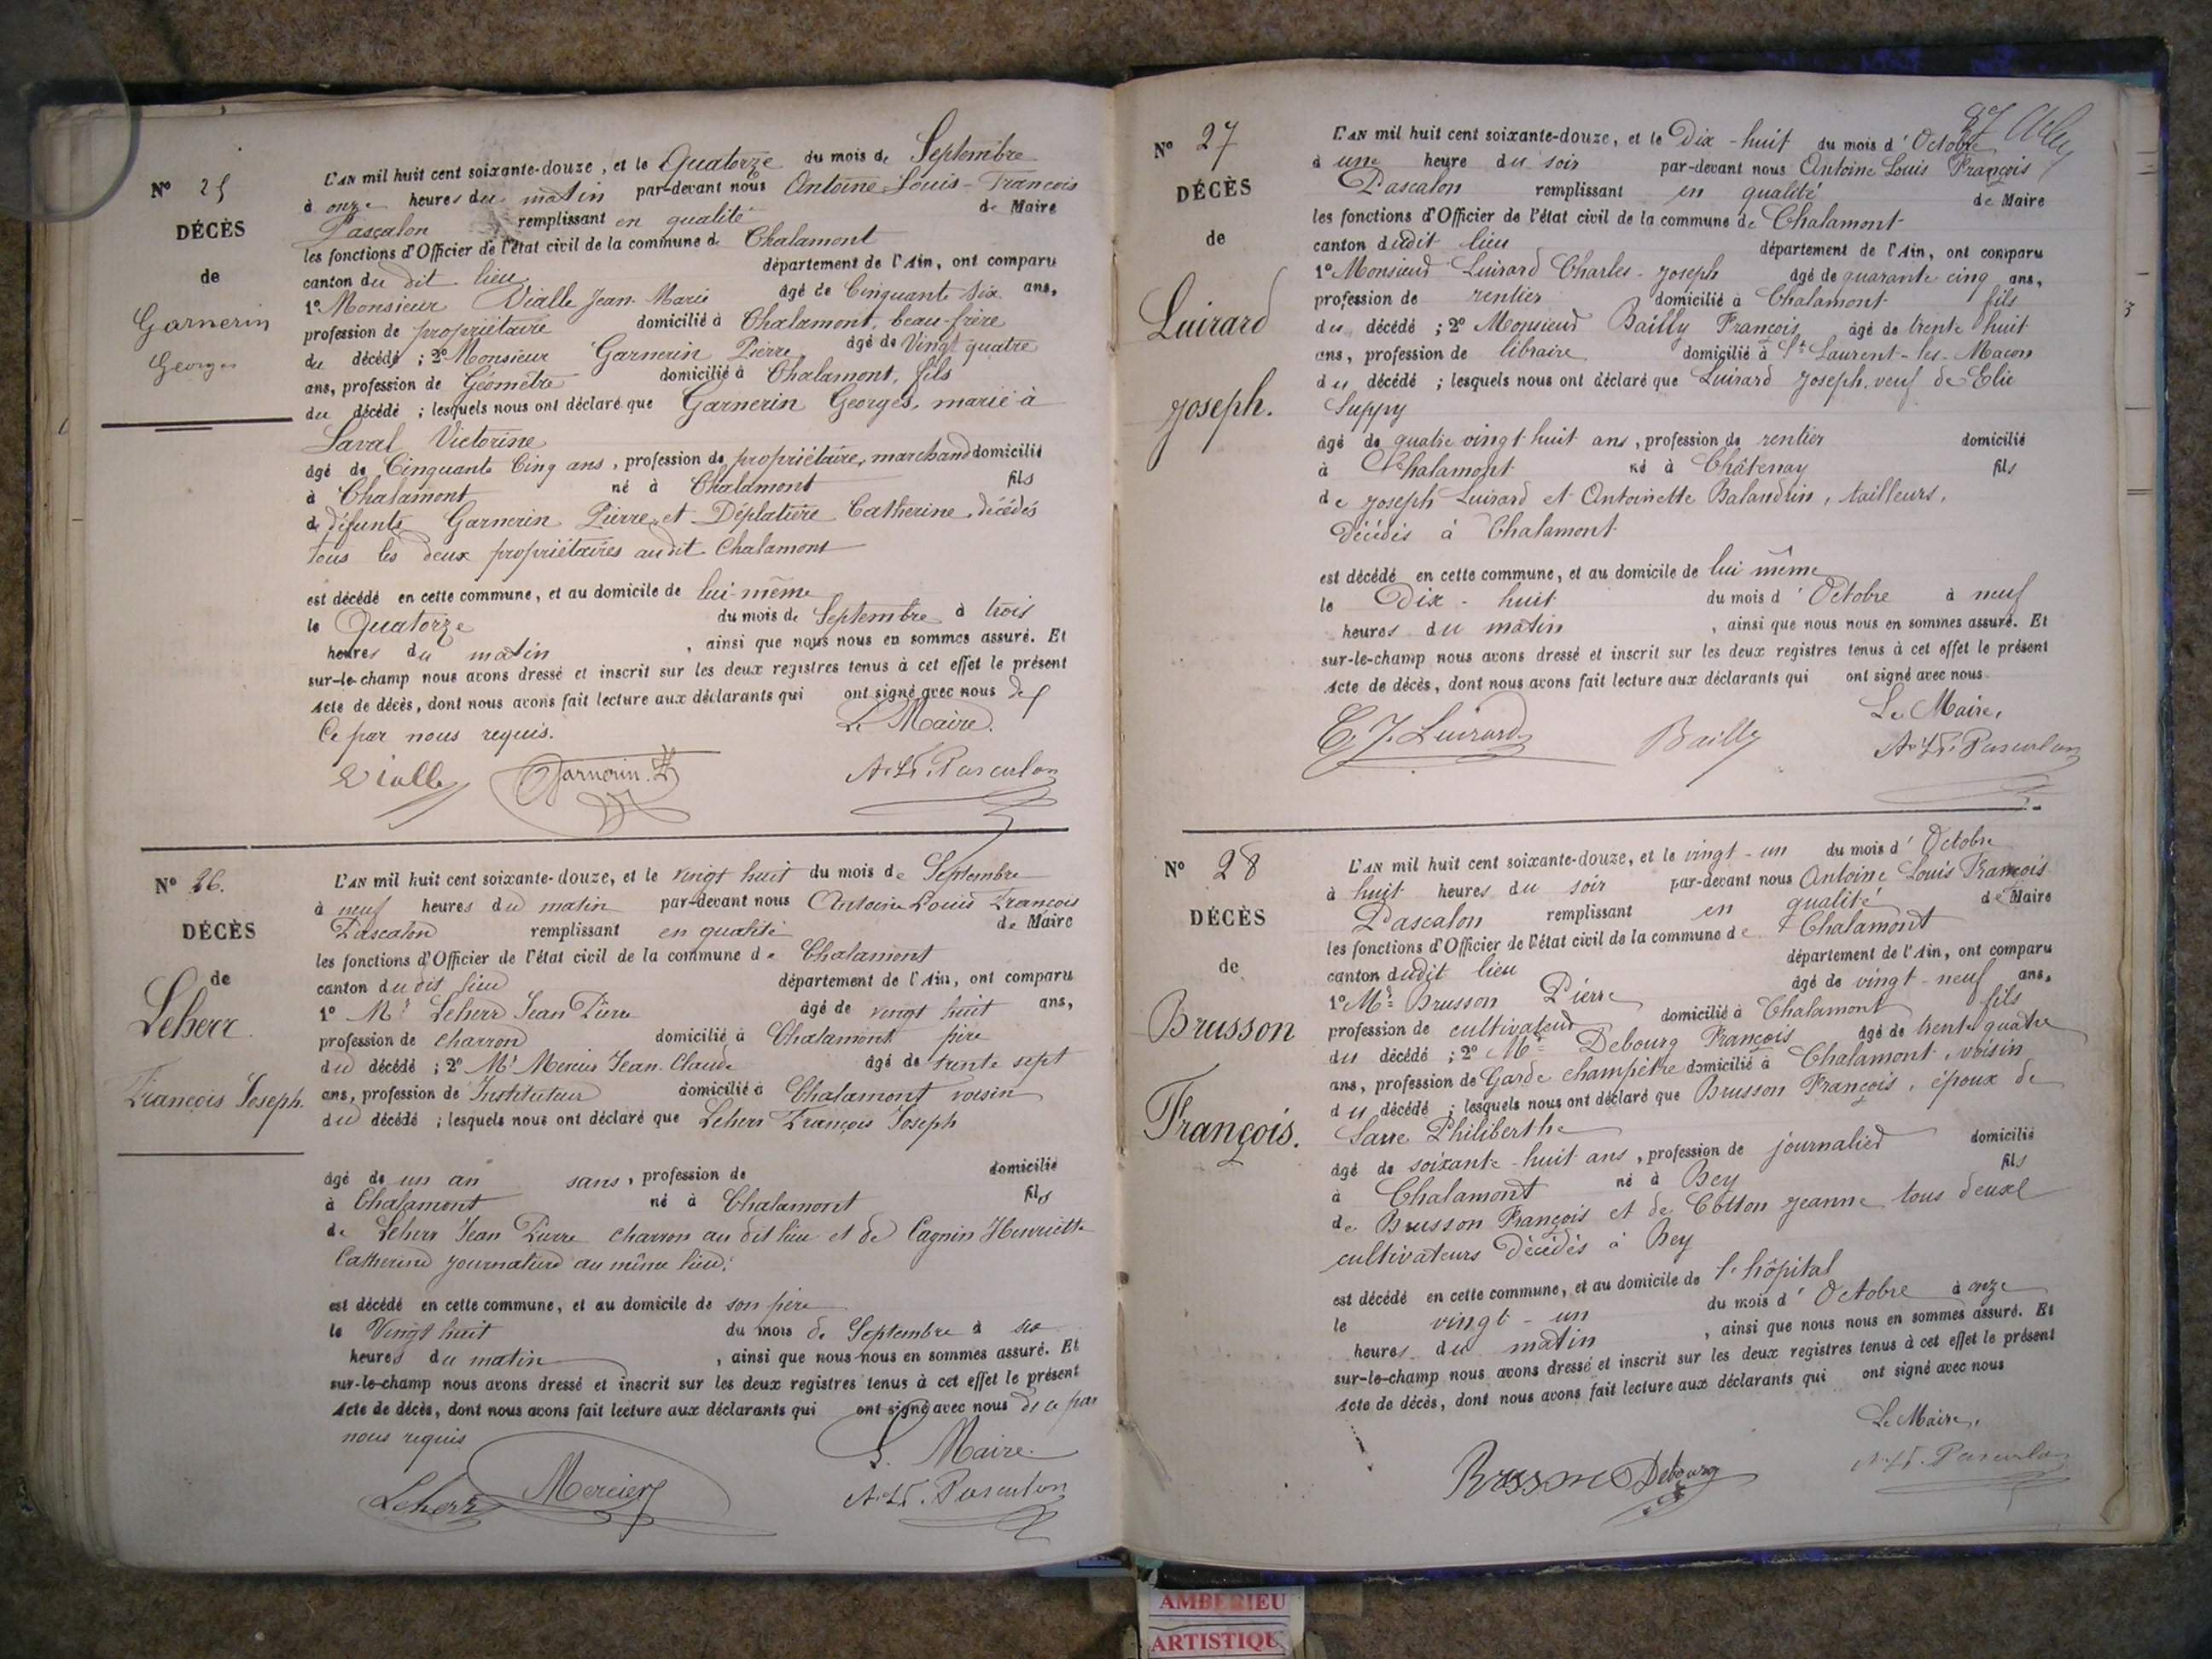 N° 25
DÉCÈS
de
Garnerin
Georges
L'AN mil huit cent soixante-douze, et le Quatorze du mois de Septembre
à onze heures du matin par-devant nous Antoine Louis-François
Pascalon remplissant en qualité de Maire
les fonctions d'Officier de l'état civil de la commune de Chalamont
canton du dit lieu département de l'Ain, ont comparu
1° Monsieur Vialle Jean-Marie âgé de Cinquante six ans,
profession de propriétaire domicilié à Chalamont, beau-frère
du décédé ; 2° Monsieur Garnerin Pierre âgé de Vingt quatre
ans, profession de Géomètre domicilié à Chalamont, fils
du décédé ; lesquels nous ont déclaré que Garnerin Georges, marié à
Laval Victorine
âgé de Cinquante Cinq ans, profession de propriétaire, marchand domicilié
à Chalamont né à Chalamont fils
de défunts Garnerin Pierre et Déplatière Catherine, décédés
tous les deux propriétaires audit Chalamont
est décédé en cette commune, et au domicile de lui-même
le Quatorze du mois de Septembre à trois
heures du matin , ainsi que nous nous en sommes assuré. Et
sur-le-champ nous avons dressé et inscrit sur les deux registres tenus à cet effet le présent
acte de décès, dont nous avons fait lecture aux déclarants qui ont signé avec nous de
Ce par nous requis. Le Maire.
Vialle Garnerin A. L. F. Pascalon
N° 26.
DÉCÈS
de
Leherr
François Joseph.
L'AN mil huit cent soixante-douze, et le vingt huit du mois de Septembre
à neuf heures du matin par-devant nous Antoine Louis François
Pascalon remplissant en qualité de Maire
les fonctions d'Officier de l'état civil de la commune de Chalamont
canton du dit lieu département de l'Ain, ont comparu
1° Mr Leherr Jean Pierre âgé de vingt huit ans,
profession de charron domicilié à Chalamont père
du décédé ; 2° Mr Mercier Jean-Claude âgé de trente sept
ans, profession de Instituteur domicilié à Chalamont voisin
du décédé ; lesquels nous ont déclaré que Leherr François Joseph
âgé de un an sans, profession de domicilié
à Chalamont né à Chalamont fils
de Leherr Jean Pierre charron au dit lieu et de Cagnin Henriette
Catherine journalière au même lieu;
est décédé en cette commune, et au domicile de son père
le Vingt huit du mois de Septembre à six
heures du matin , ainsi que nous nous en sommes assuré. Et
sur-le-champ nous avons dressé et inscrit sur les deux registres tenus à cet effet le présent
acte de décès, dont nous avons fait lecture aux déclarants qui ont signé avec nous de ce par
nous requis L. Maire.
Leherr Mercier A. L. F. Pascalon
N° 27
DÉCÈS
de
Luirard
Joseph.
L'AN mil huit cent soixante-douze, et le Dix-huit du mois d'Octobre
à une heure du soir par-devant nous Antoine Louis François
Pascalon remplissant en qualité de Maire
les fonctions d'Officier de l'état civil de la commune de Chalamont
canton dudit lieu département de l'Ain, ont comparu
1° Monsieur Luirard Charles-Joseph âgé de quarante cinq ans,
profession de rentier domicilié à Chalamont fils
du décédé ; 2° Monsieur Bailly François âgé de trente huit
ans, profession de libraire domicilié à St Laurent-les-Macon
du décédé ; lesquels nous ont déclaré que Luirard Joseph, veuf de Elie
Suppy
âgé de quatre vingt huit ans, profession de rentier domicilié
à Chalamont né à Châtenay fils
de Joseph Luirard et Antoinette Balandrin, tailleurs,
Décédés à Chalamont
est décédé en cette commune, et au domicile de lui même
le Dix-huit du mois d'Octobre à neuf
heures du matin , ainsi que nous nous en sommes assuré. Et
sur-le-champ nous avons dressé et inscrit sur les deux registres tenus à cet effet le présent
acte de décès, dont nous avons fait lecture aux déclarants qui ont signé avec nous
Le Maire,
C. J. Luirard Bailly A. L. F. Pascalon
N° 28
DÉCÈS
de
Brusson
François.
L'AN mil huit cent soixante-douze, et le vingt-un du mois d'Octobre
à huit heures du soir par-devant nous Antoine Louis François
Pascalon remplissant en qualité de Maire
les fonctions d'Officier de l'état civil de la commune de Chalamont
canton dudit lieu département de l'Ain, ont comparu
1° Mr Brusson Pierre âgé de vingt-neuf ans,
profession de cultivateur domicilié à Chalamont fils
du décédé ; 2° Mr Debourg François âgé de trente quatre
ans, profession de Garde champêtre domicilié à Chalamont, voisin
du décédé ; lesquels nous ont déclaré que Brusson François, époux de
Sarre Philiberthe
âgé de soixante-huit ans, profession de journalier domicilié
à Chalamont né à Bey fils
de Brusson François et de Cotton Jeanne tous deux
cultivateurs Décédés à Bey
est décédé en cette commune, et au domicile de l'hôpital
le vingt-un du mois d'Octobre à onze
heures du matin , ainsi que nous nous en sommes assuré. Et
sur-le-champ nous avons dressé et inscrit sur les deux registres tenus à cet effet le présent
acte de décès, dont nous avons fait lecture aux déclarants qui ont signé avec nous
Le Maire,
Brusson Debourg A. L. F. Pascalon
AMBERIEU
ARTISTIQU